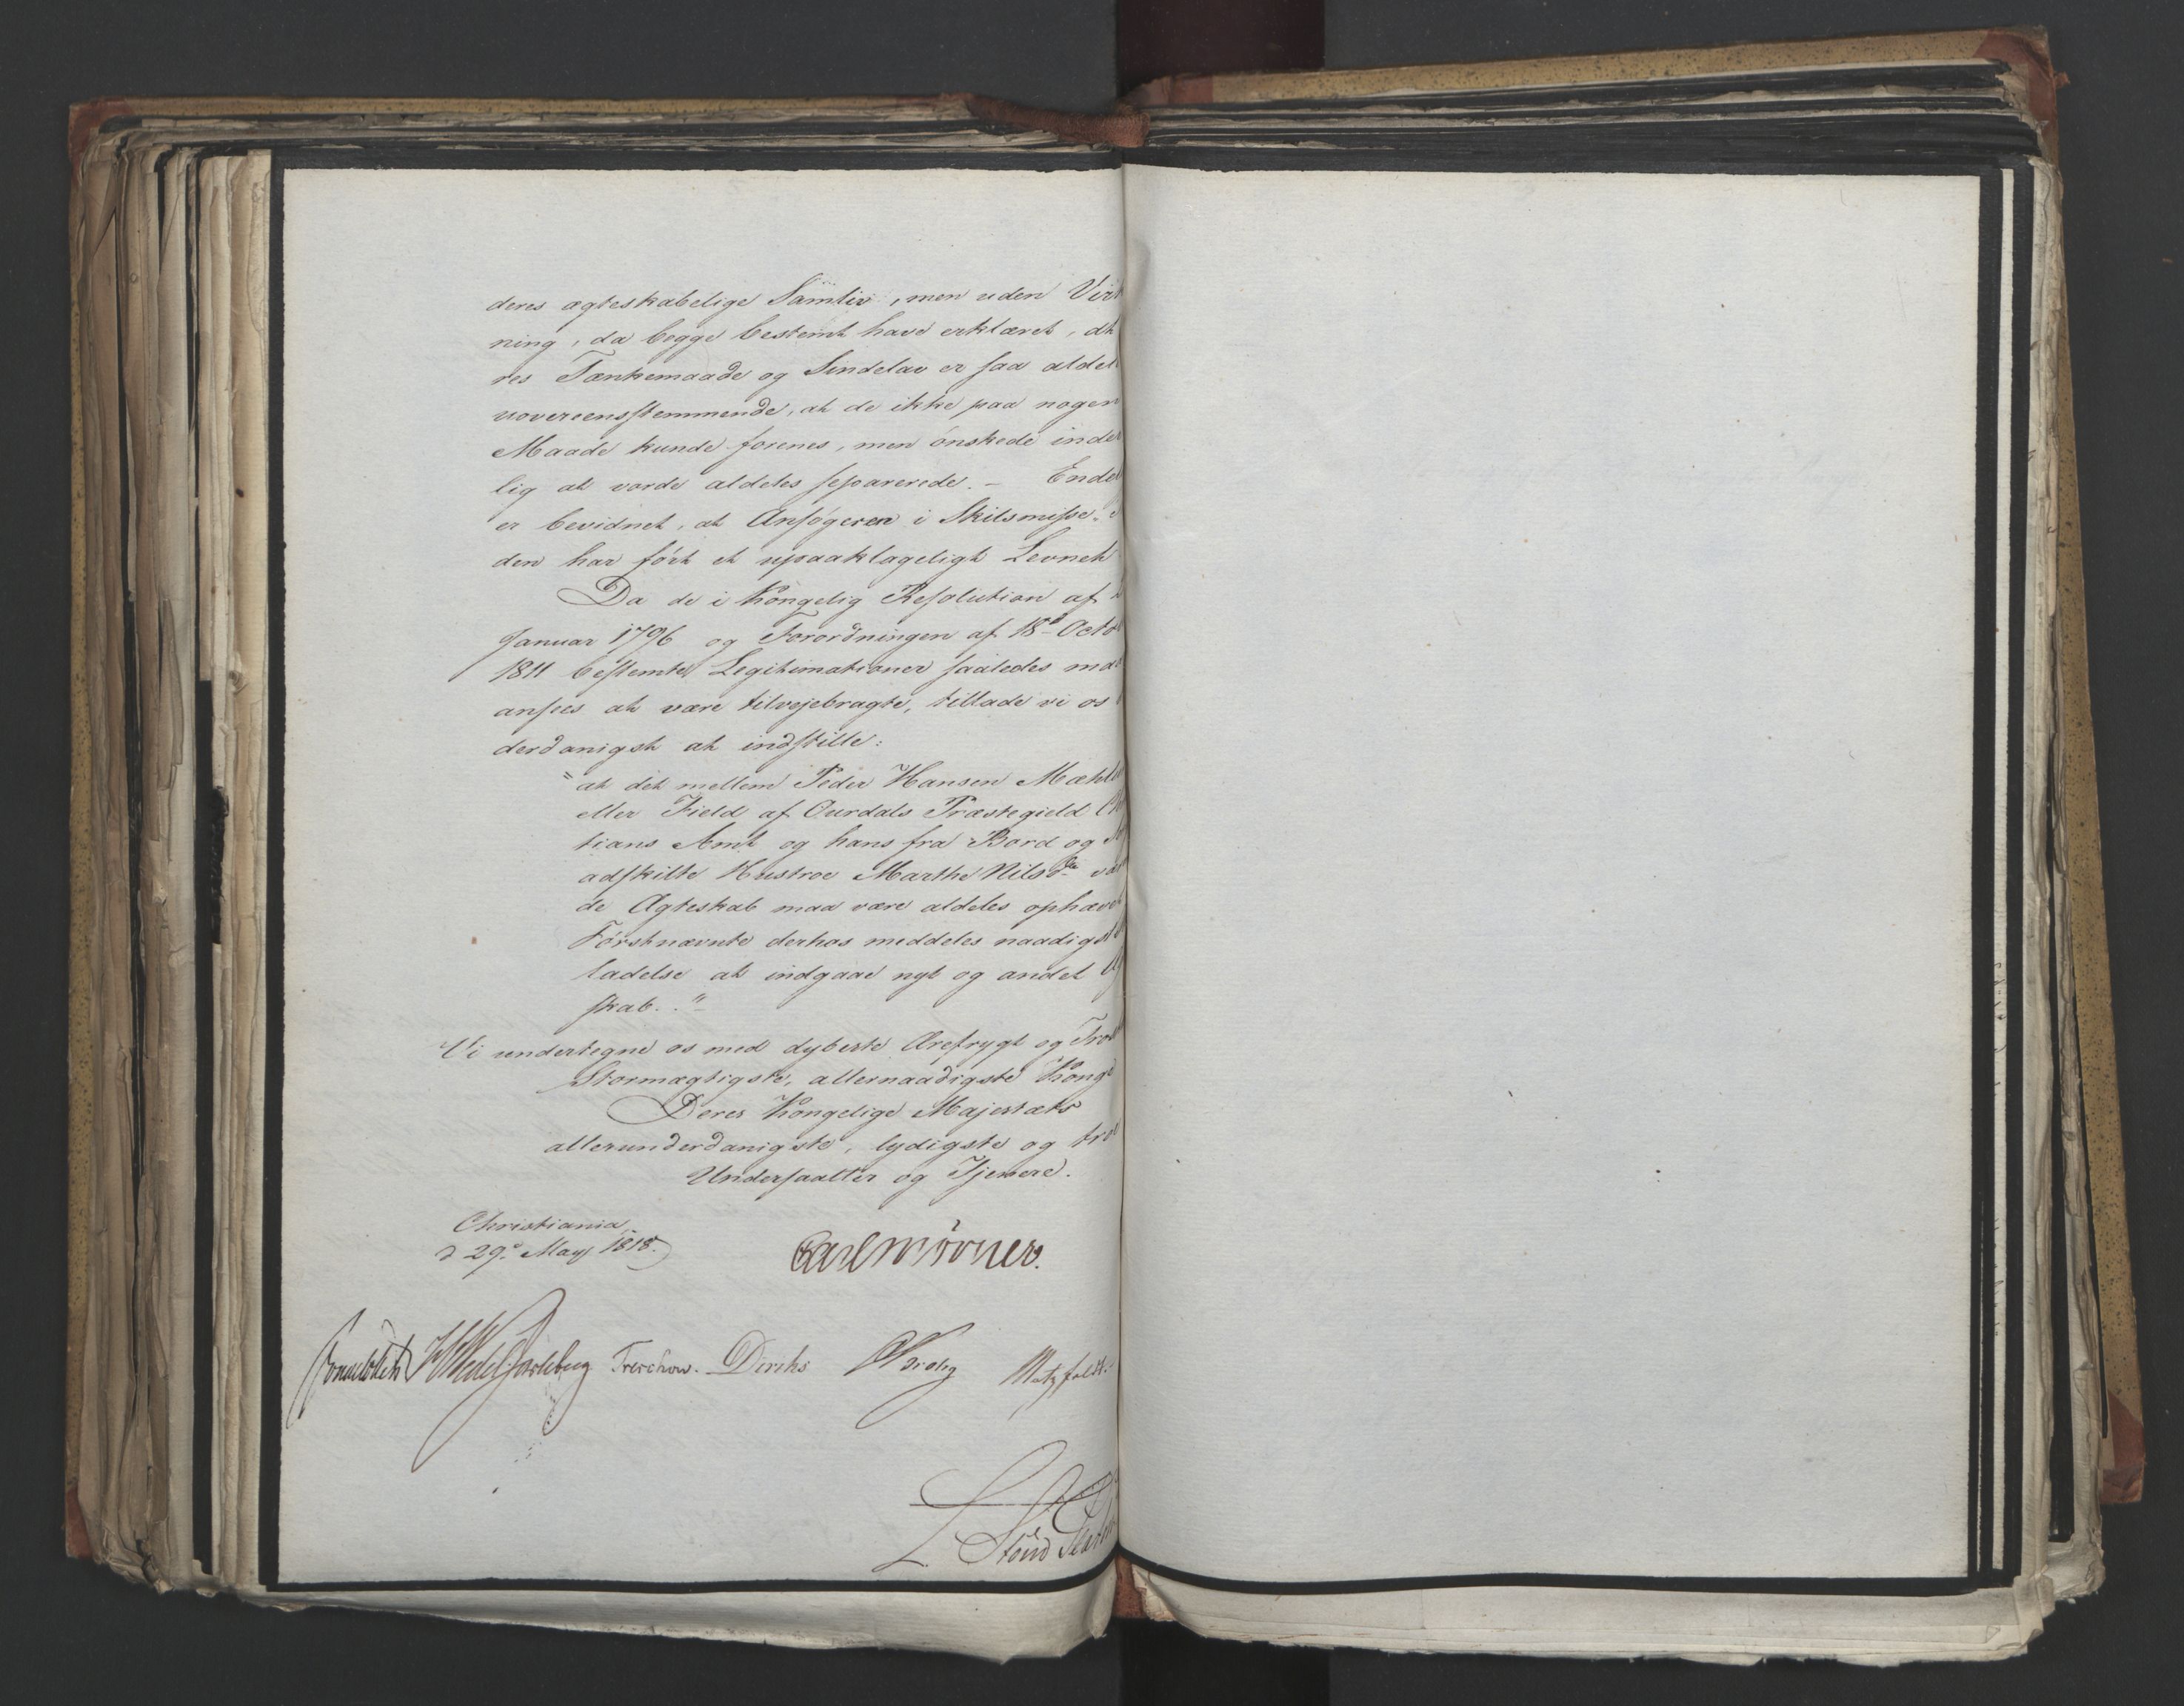 deres ægteskabelige Samliv, men uden Virk
ning, da begge bestemt have erklæret, at de
res Tænkemaade og Sindelav er saa aldel
uovereensstemmende, at de ikke paa nogen
Maade kunde forenes, men ønskede inder
lig at vorde aldeles separerede. – Endel
er bevidnet, at Ansøgeren i Skilsmisse-
den har ført et upaaklageligt Levnet
Da de i Kongelig Resolution af
Januar 1796 og Forordningen af 18d Octo
1811 bestemte Legitimationer saaledes maa
ansees at være tilvejebragte, tillade vi os
derdanigst at indstille:
"at det mellem Peder Hansen Mæhl
eller Field af Ourdals Præstegield
tians Amt og hans fra Bord og
adskilte Hustroe Marthe Nilsdr vær
de Ægteskab maa være aldeles ophævet
Førstnævnte derhos meddeles naadigst
ladelse at indgaae nyt og andet Æg
skab."
Vi undertegne os med dybeste Ærefrygt og Tro
Stormægtigste, allernaadigste Konge
Deres Kongelige Majestæts
allerunderdanigste, lydigste og troe
Undersaatter og Tjenere.
Christiania
d 29d May 1818.
Carl Mörner.
Sommerhielm HWedel Jarlsberg Treschow. Diriks Motzfeldt.